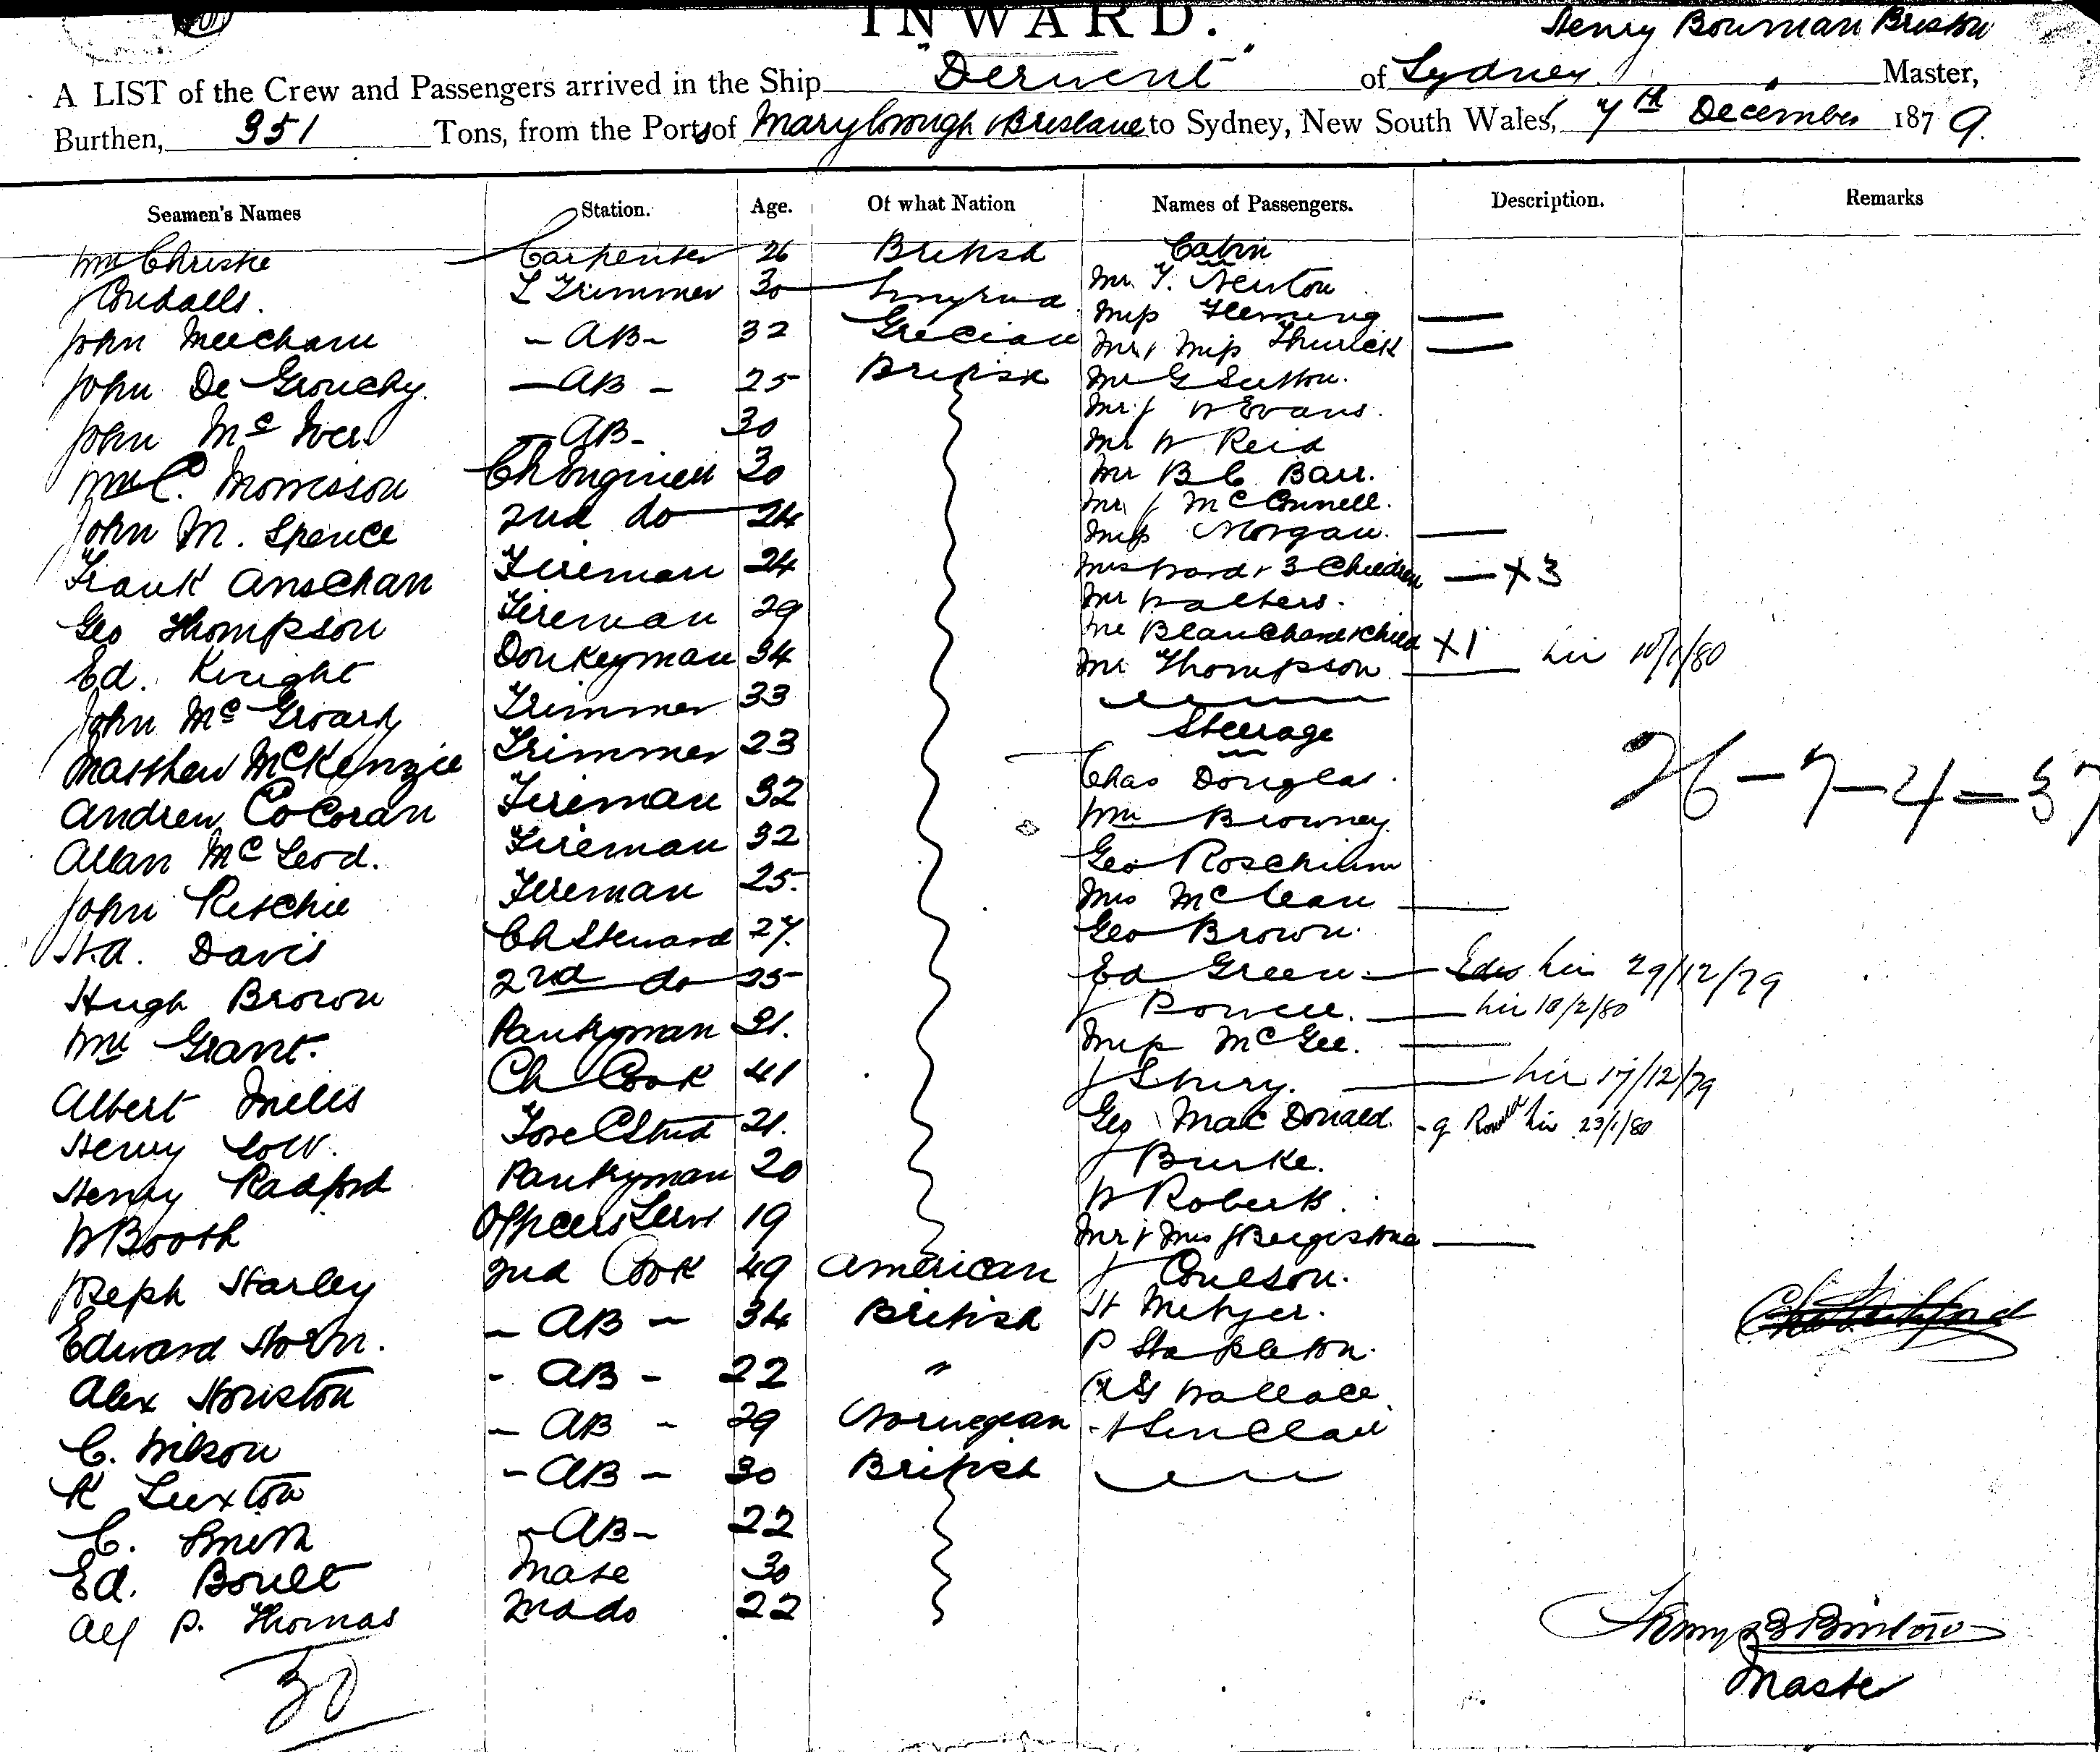 INWARD.
Henry Bowman Bristow
A LIST of the Crew and Passengers arrived in the Ship "Derwent" of Sydney, Master,
Burthen, 351 Tons, from the Ports of Maryborough & Brisbane to Sydney, New South Wales, 7th December 1879.
Seamen's Names Station. Age. Of what Nation Names of Passengers. Description. Remarks
Wm Christie Carpenter 26 British Cabin
L Trimmer 30 Smyrna Mr T. Newton
John Meecham - AB - 32 Grecian Miss Fleming —
Mr & Miss Thurick —
John De Grouchy. - AB - 25 British Mr G Sutton.
Mr J W Evans.
John Mc Iver - AB - 30 Mr W Reid
Wm C. Morrisson Ch Engineer 30 Mr B C Barr.
Mr J McConnell.
John M. Spence 2nd do 24 Miss Morgan. —
Frank Anschan Fireman 24 Mrs Ward & 3 Children — X3
Geo Thompson Fireman 29 Mr Walters.
Blanchard & Child X1
Ed. Knight Donkeyman 34 Mr Thompson — 10/1/80
John Mc Groarty Trimmer 33 Steerage
Matthew McKenzie Trimmer 23 Chas Douglas.
26-7-4=37
Andrew CoCoran Fireman 32 Wm Browney.
Allan McLeod. Fireman 32 Geo Roschium
John Ritchie Fireman 25. Mrs McLean —
H.A. Davis Ch Steward 27. Geo Brown.
Hugh Brown 2nd do 25 Ed Green — 29/12/79
J Powell. — 10/2/80
Wm Grant. Pantryman 21. Miss McGee. —
Albert Mills Ch Cook 41 J Story. — 17/12/79
Henry Low. Fore C Stwd 21. Geo MacDonald. 23/1/80
J Burke.
Henry Radford Pantryman 20 W Roberts.
W Booth Officers Serv 19 Mr & Mrs J Bergestone —
Joseph Harley 2nd Cook 49 American J Coulson.
Edward Horn. - AB - 34 British H Metzer.
P Stapleton.
Alex Houston - AB - 22 " R G Wallace
C. Wilson - AB - 29 Norwegian H Sinclair
K Luxton - AB - 30 British
C. Smith - AB - 22
Ed. Boult Mate 30
Alf P. Thomas 2nd do 22
30
Henry B Bristow
Master